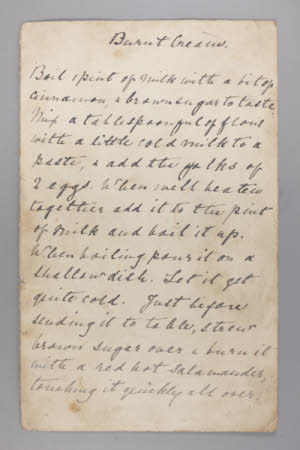 Burnt Cream.
Boil 1 pint of milk with a bit of
cinnamon, & brown sugar to taste
Mix a tablespoonful of flour
with a little cold milk to a
paste, & add the yolks of
2 eggs. When well beaten
together add it to the pint
of milk and boil it up.
When boiling pour it on a
shallow dish. Let it get
quite cold. Just before
sending it to table, strew
brown sugar over & burn it
with a red hot salamander,
touching it quickly all over.